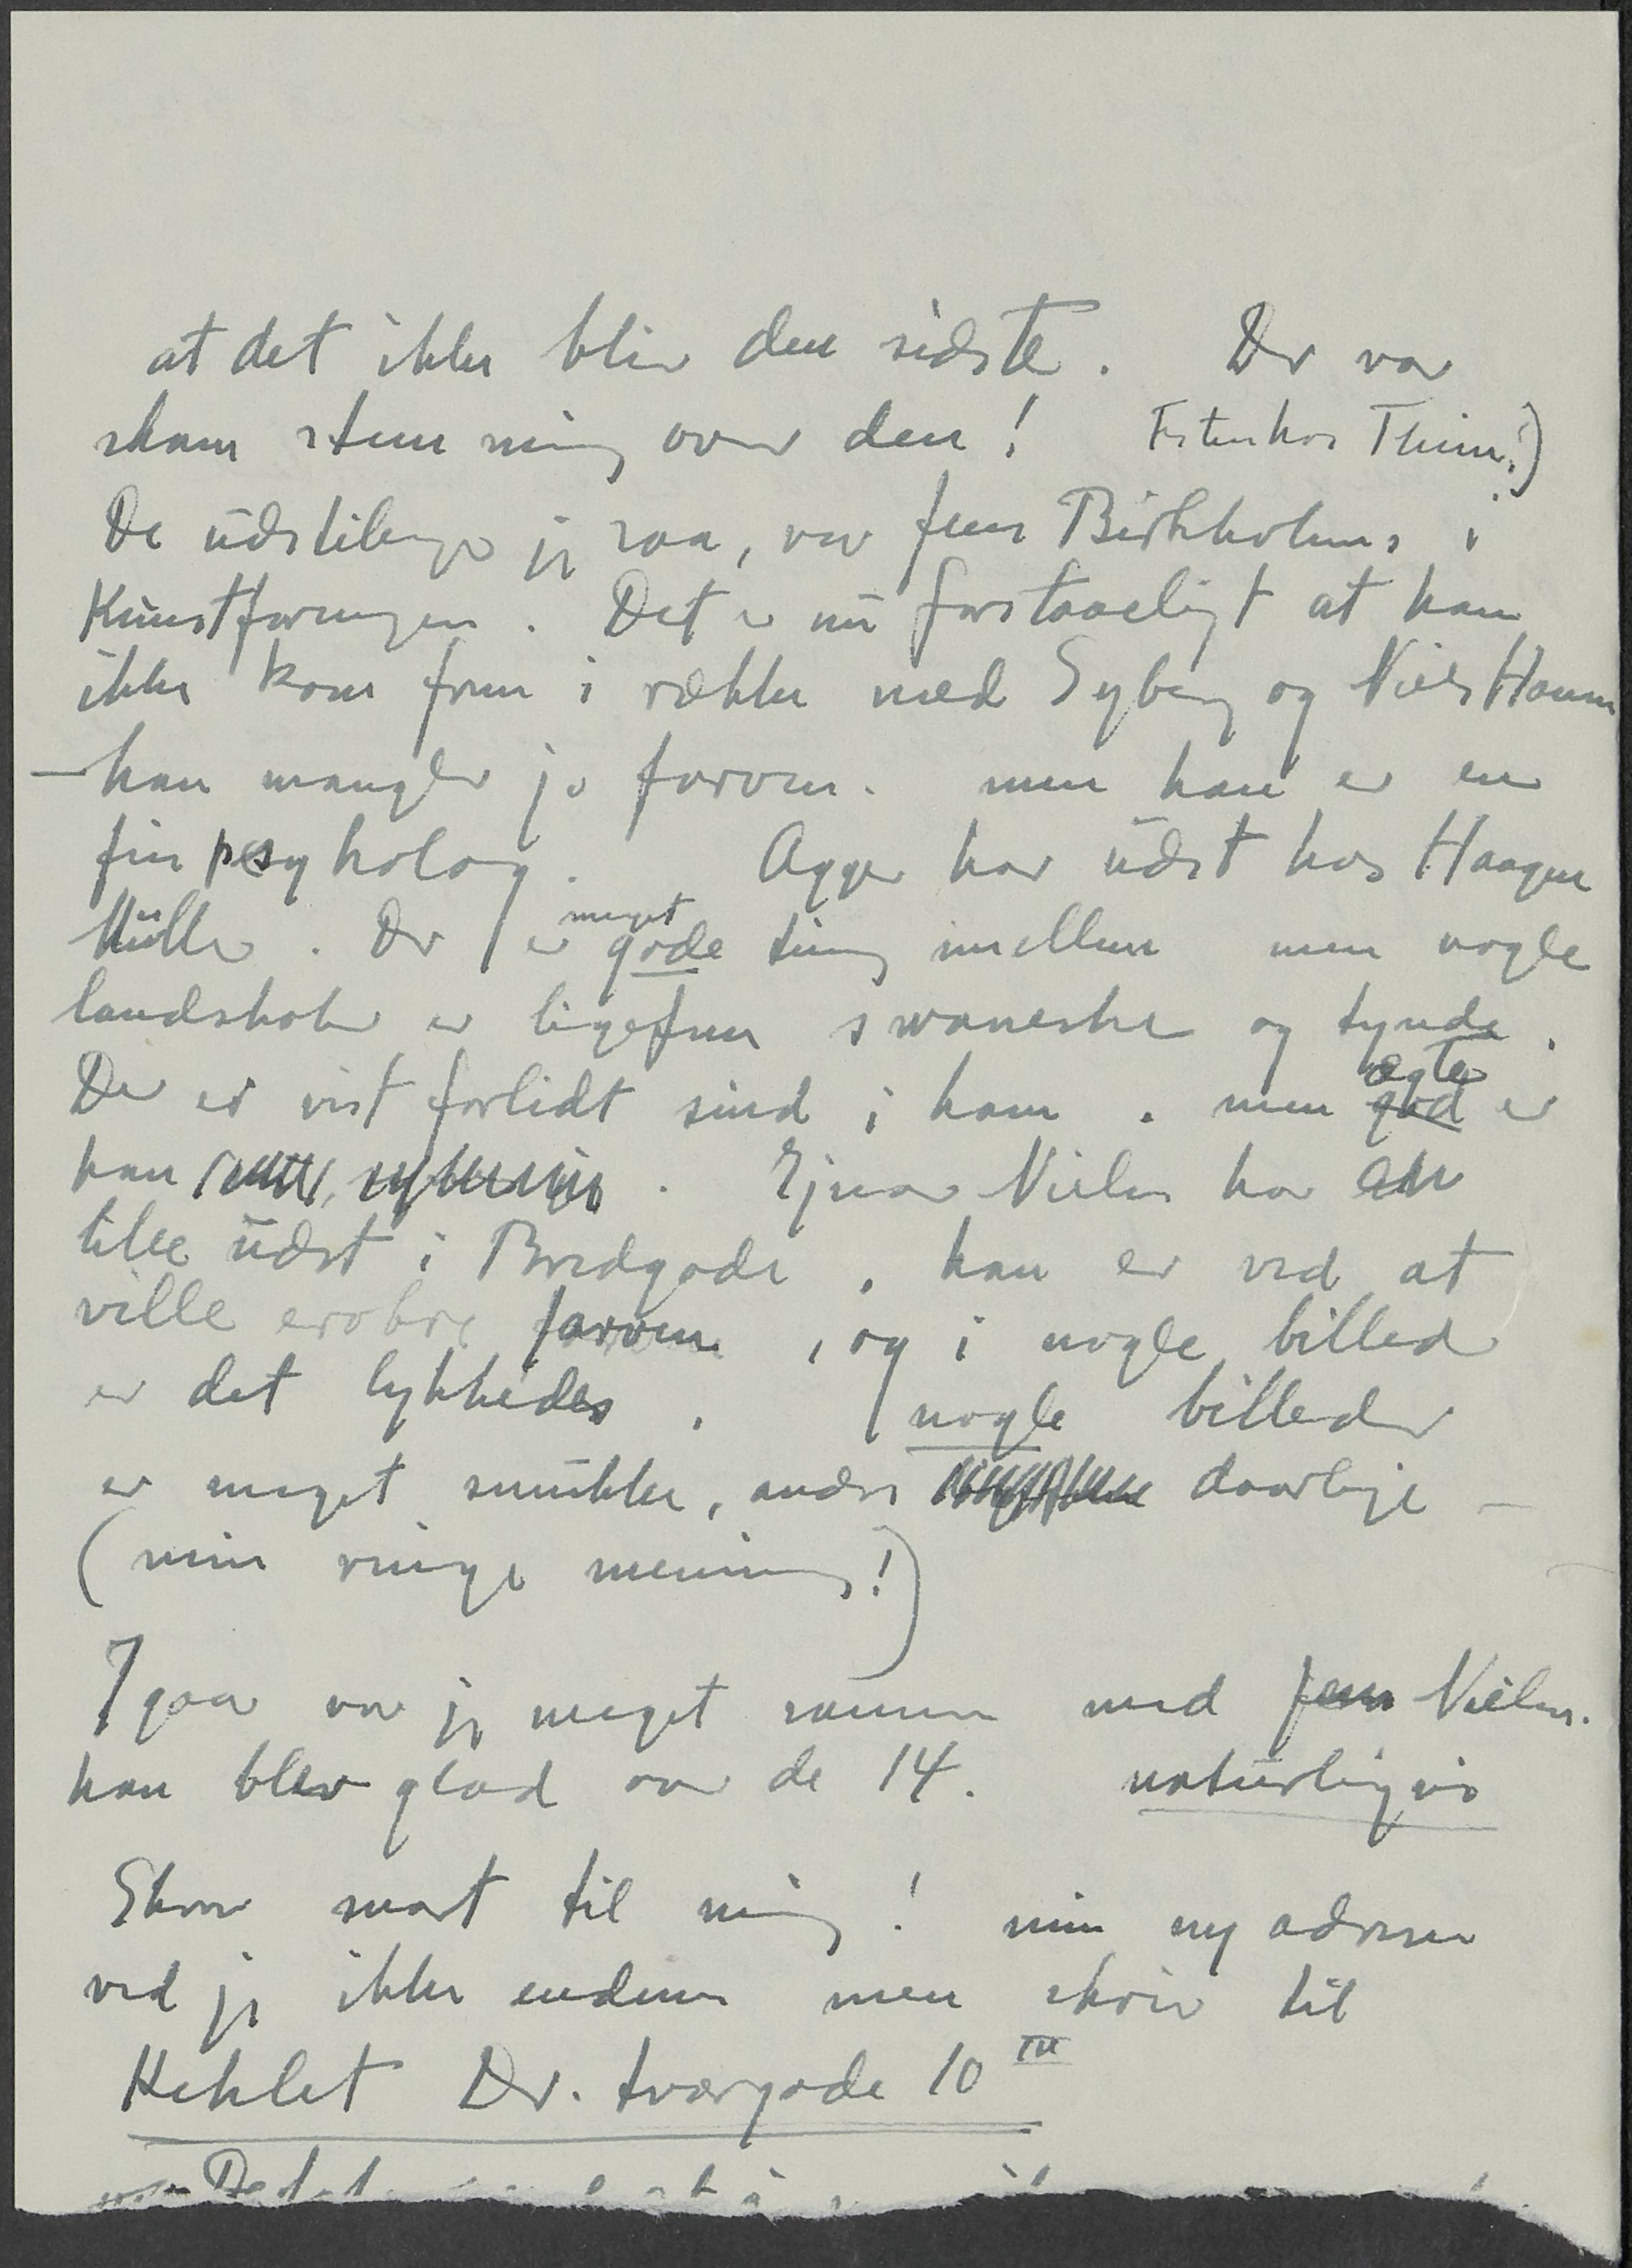 at det ikke bliv den sidste. Der var
skam stemning over den! Festen hos Thim.)
De udstilinger jeg saa, var Jens Birkholms i
Kunstforeningen. Det er nu forstaaeligt at han
ikke kom frem i række med Syberg og Niels Hansen
— han mangler jo farven. men han er en
fin psykolog. Agger har udst hos Haagen
Müller. Der er meget gode ting imellem men nogle
landskaber er ligefrem swaneske og tynde.
Der er vist forlidt sind i ham. men ægte god er
han. Ejnar Nielsen har en
lille udst i Bredgade, han er ved at
ville erobre farven, og i nogle billeder
er det lykkedes. nogle billeder
er meget smukke, andre daarlige —
(min ringe mening!)
Igaar var jeg meget sammen med Jens Nielsen.
han blev glad over de 14. naturligvis
Skriv snart til mig! min ny adresse
ved jeg ikke endnu men skriv til
Kehlet Dr. tværgade 10